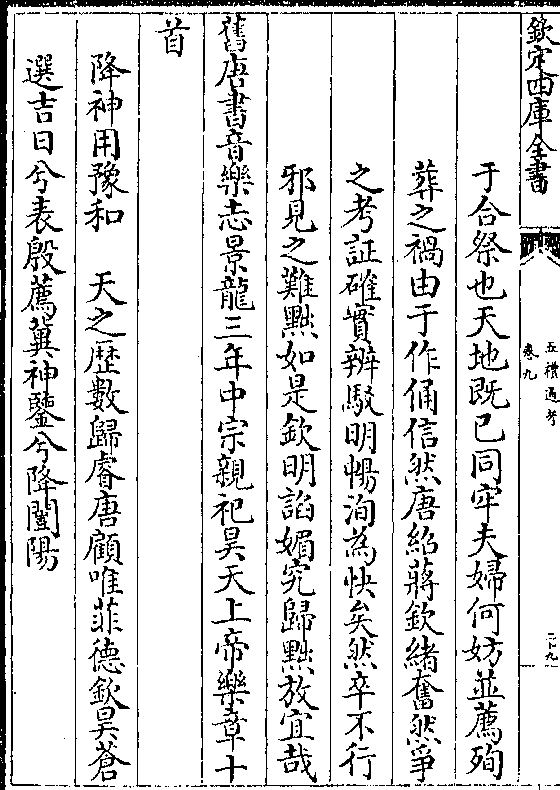 欽定四庫全書
五禮通考
卷九
二十九
于合祭也天地既已同牢夫婦何妨並薦殉
葬之禍由于作俑信然唐紹蔣欽緒奮然爭
之考証確實辨駁明暢洵為快矣然卒不行
邪見之難黜如是欽明諂媚究歸黜放宜哉
舊唐書音樂志景龍三年中宗親祀昊天上帝樂章十
首
降神用豫和 天之歴數歸睿唐顧唯菲德欽昊蒼
選吉日兮表殷薦冀神鑒兮降闓陽